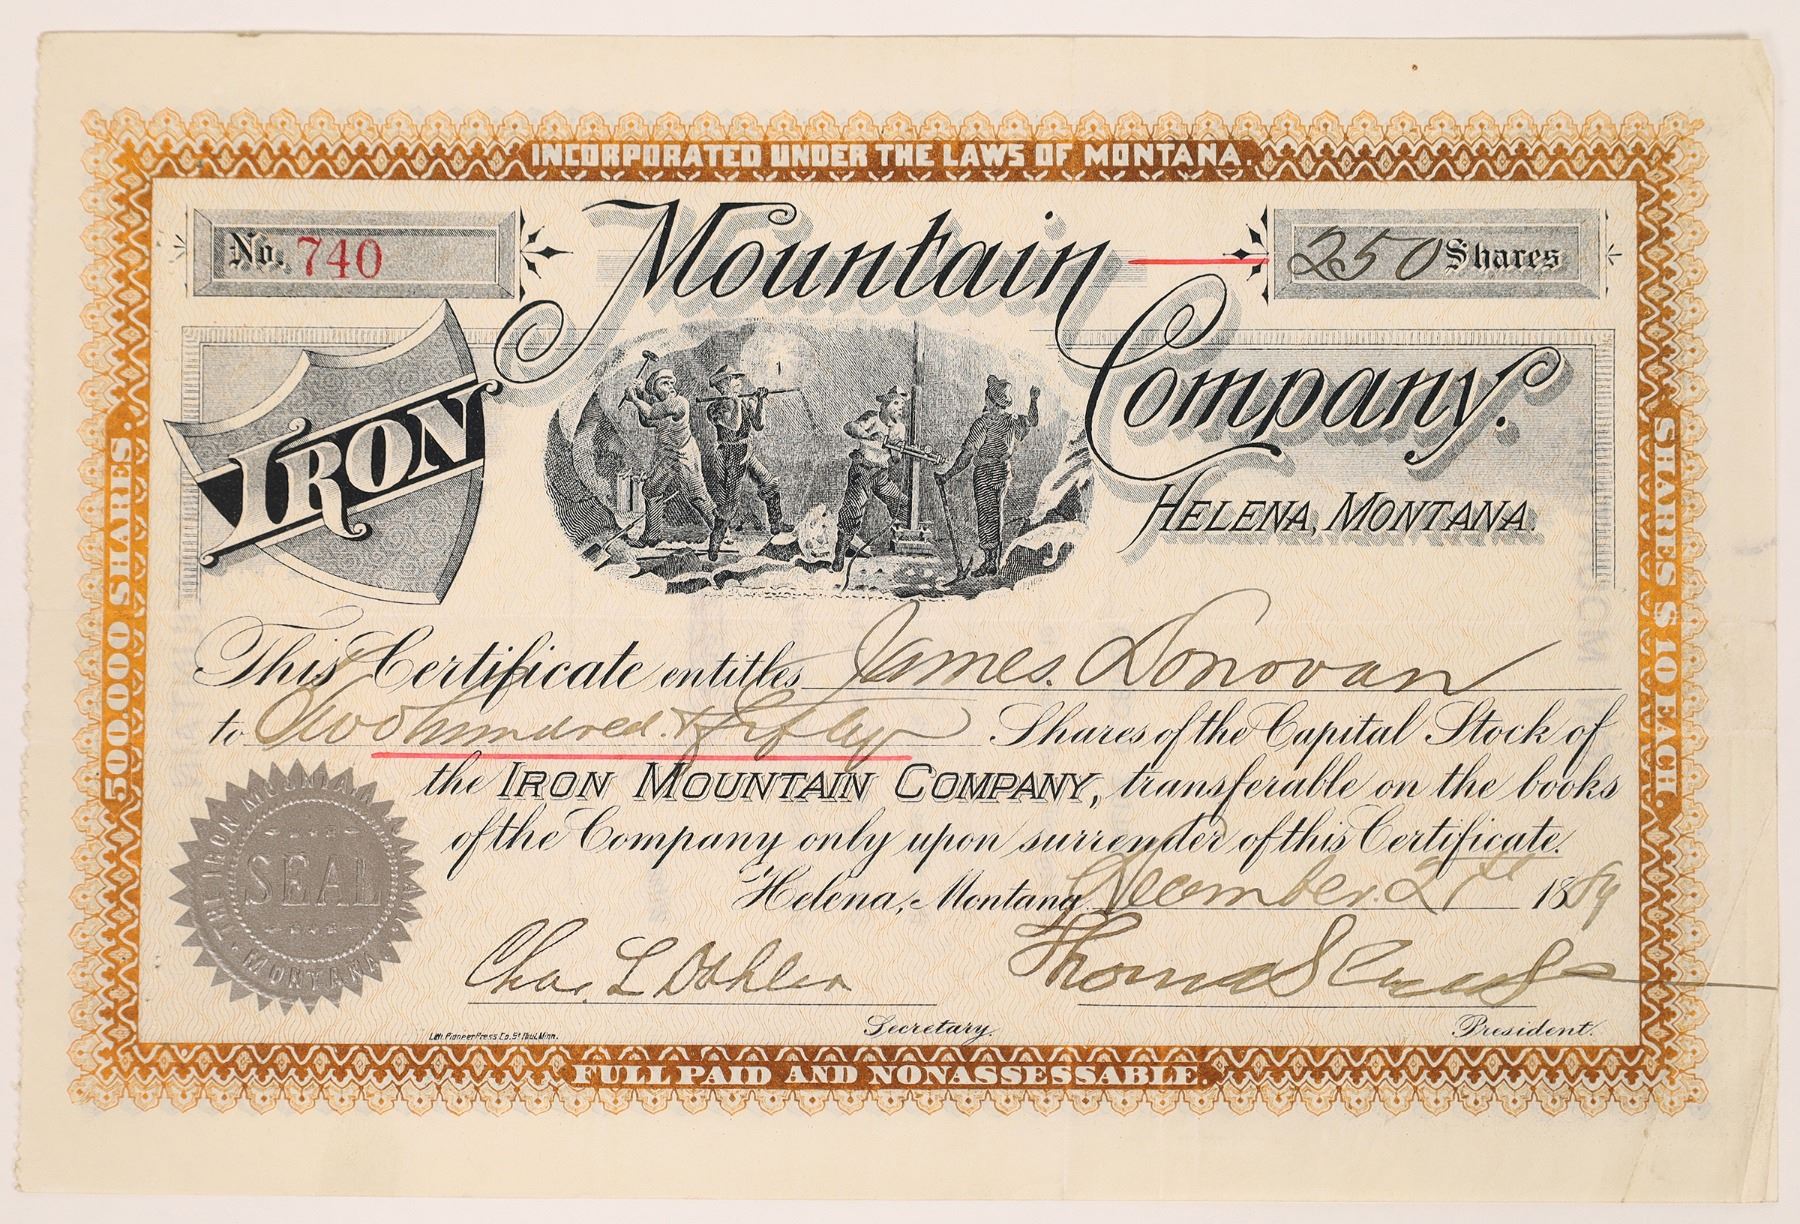 INCORPORATED UNDER THE LAWS OF MONTANA.
No. 740
250 Shares
IRON
Mountain
Company.
HELENA, MONTANA.
500,000 SHARES.
SHARES $10 EACH.
This Certificate entitles James Donovan
to Two hundred & fifty Shares of the Capital Stock of
the IRON MOUNTAIN COMPANY, transferable on the books
of the Company only upon surrender of this Certificate.
Helena, Montana December 27th 1889
THE IRON MOUNTAIN
SEAL
MONTANA
Chas. L Dahler
Secretary.
Thomas
President.
Lith. Pioneer Press Co. St Paul, Minn.
FULL PAID AND NONASSESSABLE.